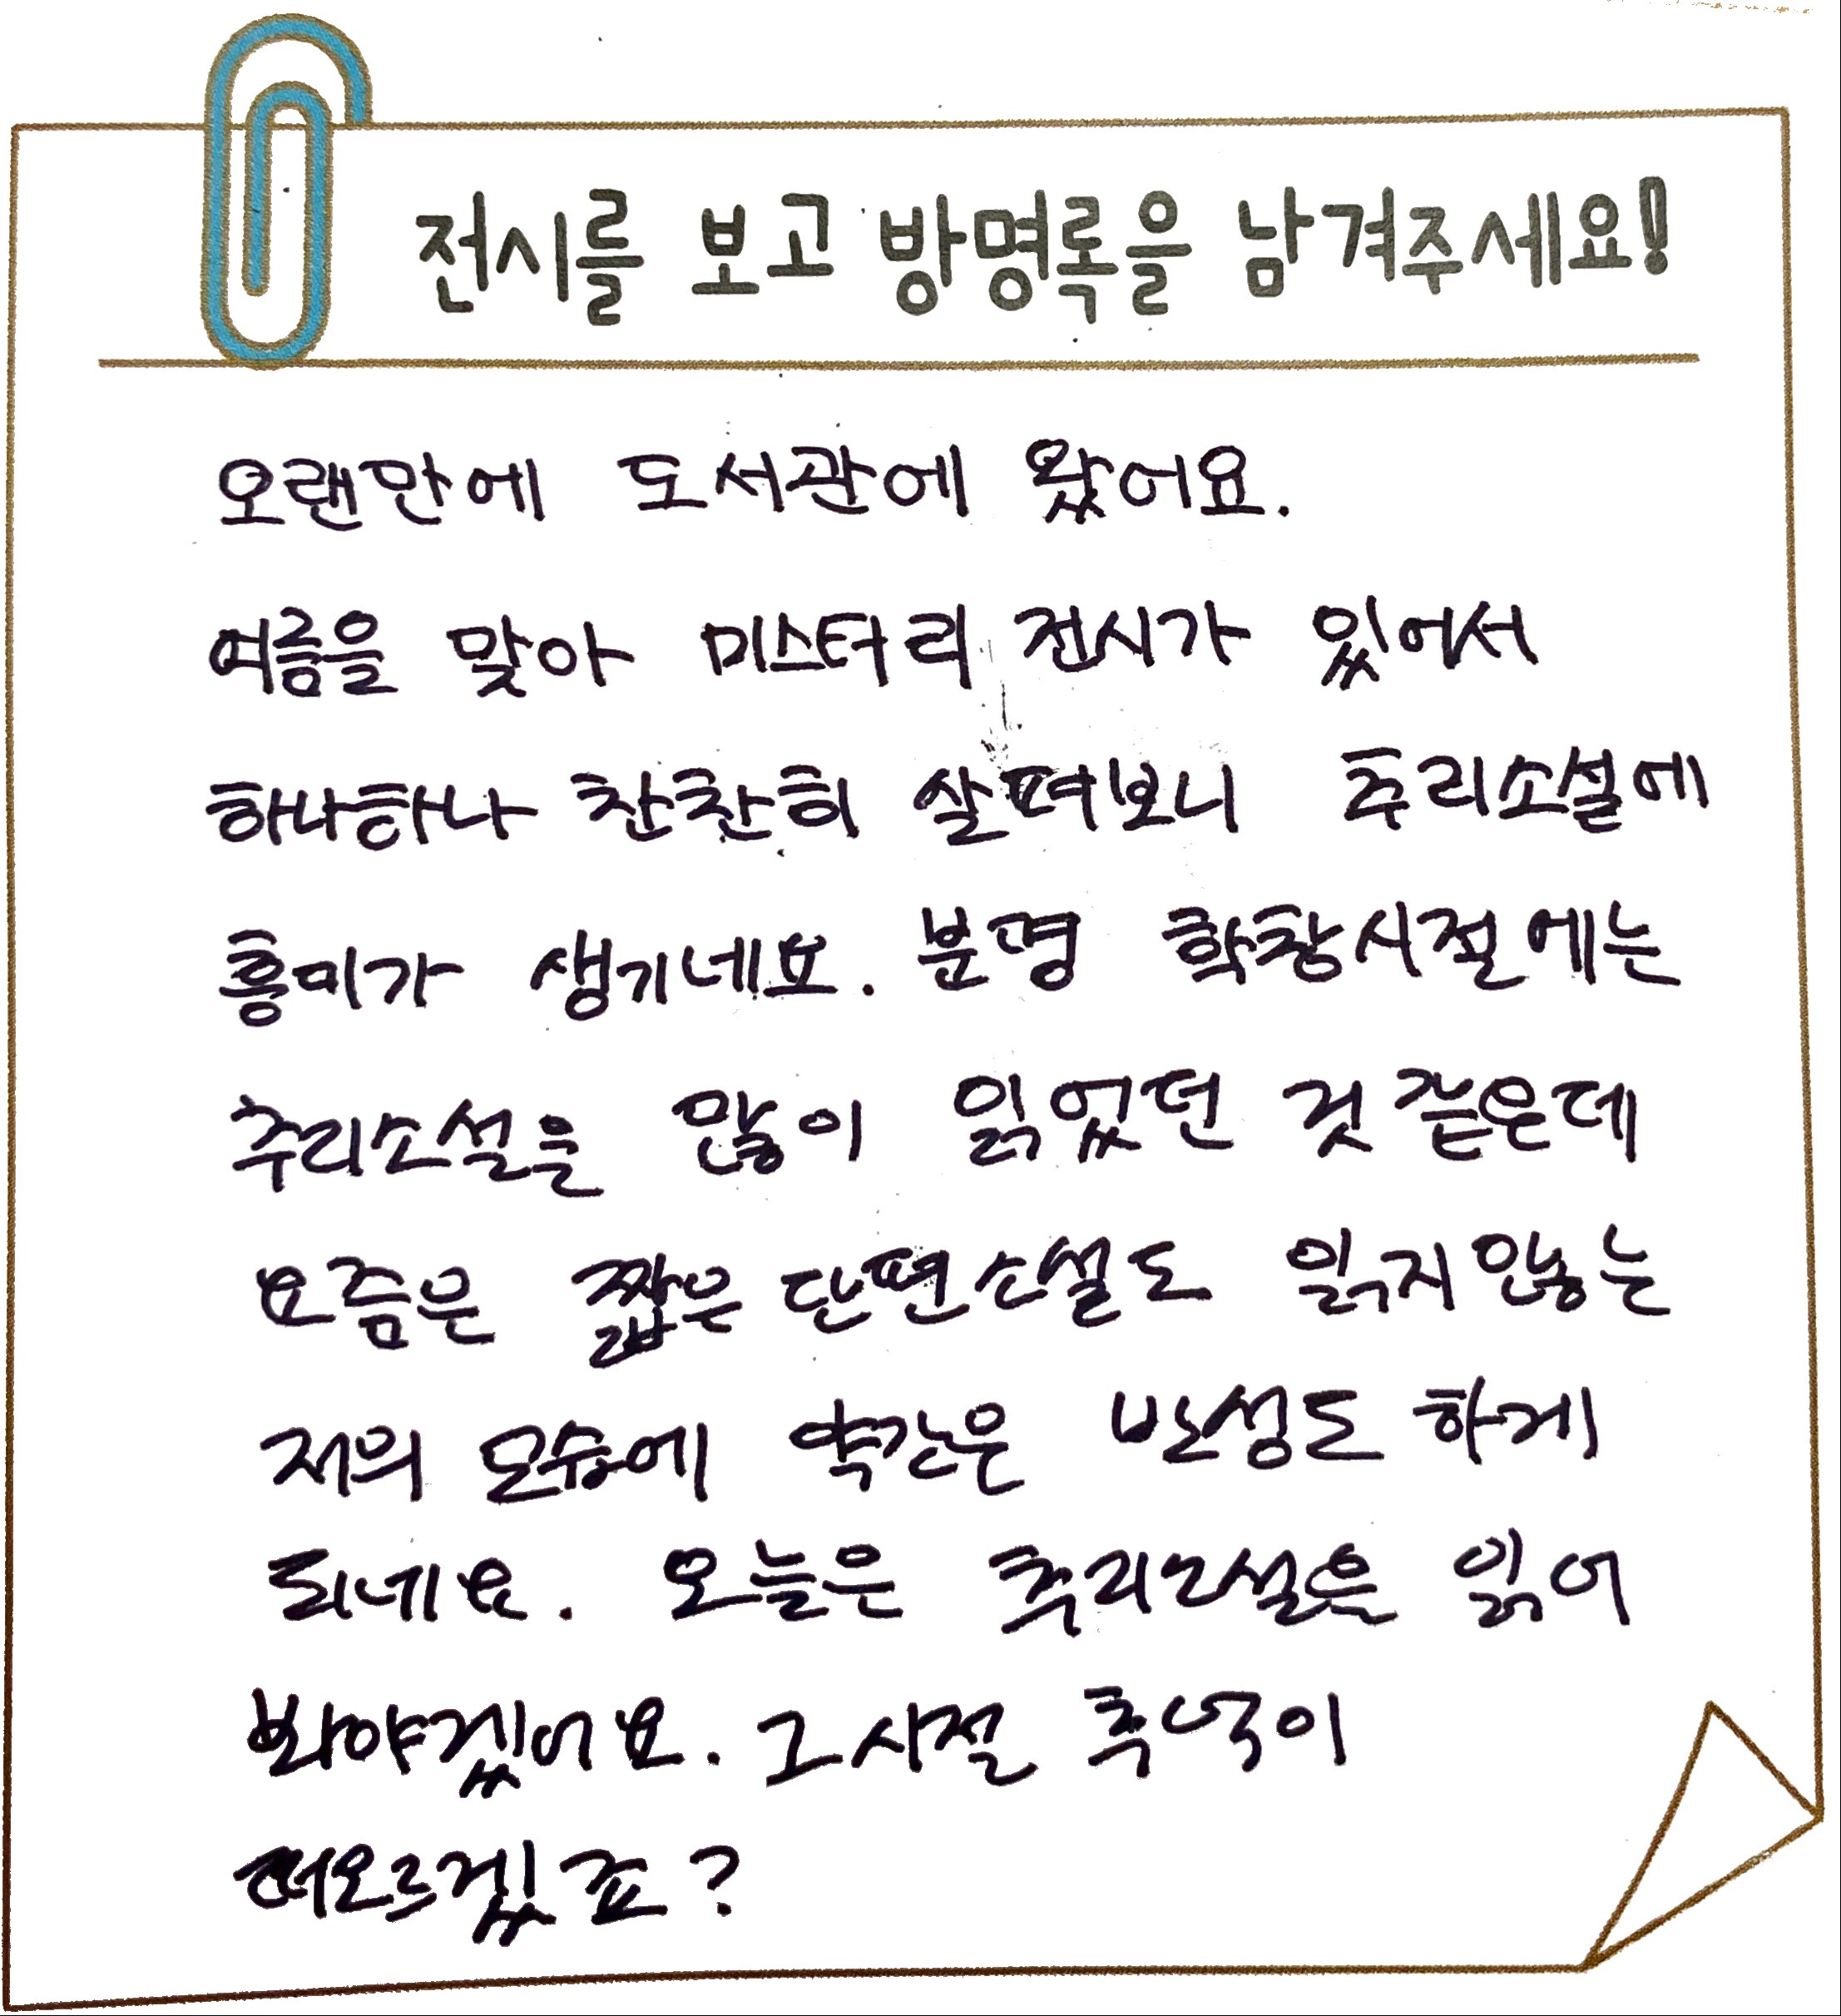 전시를 보고 방명록을 남겨주세요!
오랜만에 도서관에 왔어요.
여름을 맞아 미스터리 전시가 있어서
하나하나 찬찬히 살펴보니 추리소설에
흥미가 생기네요. 분명 학창시절에는
추리소설을 많이 읽었던 것 같은데
요즘은 짧은 단편소설도 읽지 않는
저의 모습에 약간은 반성도 하게
되네요. 오늘은 추리소설을 읽어
봐야겠어요. 그 시절 추억이
떠오르겠죠?